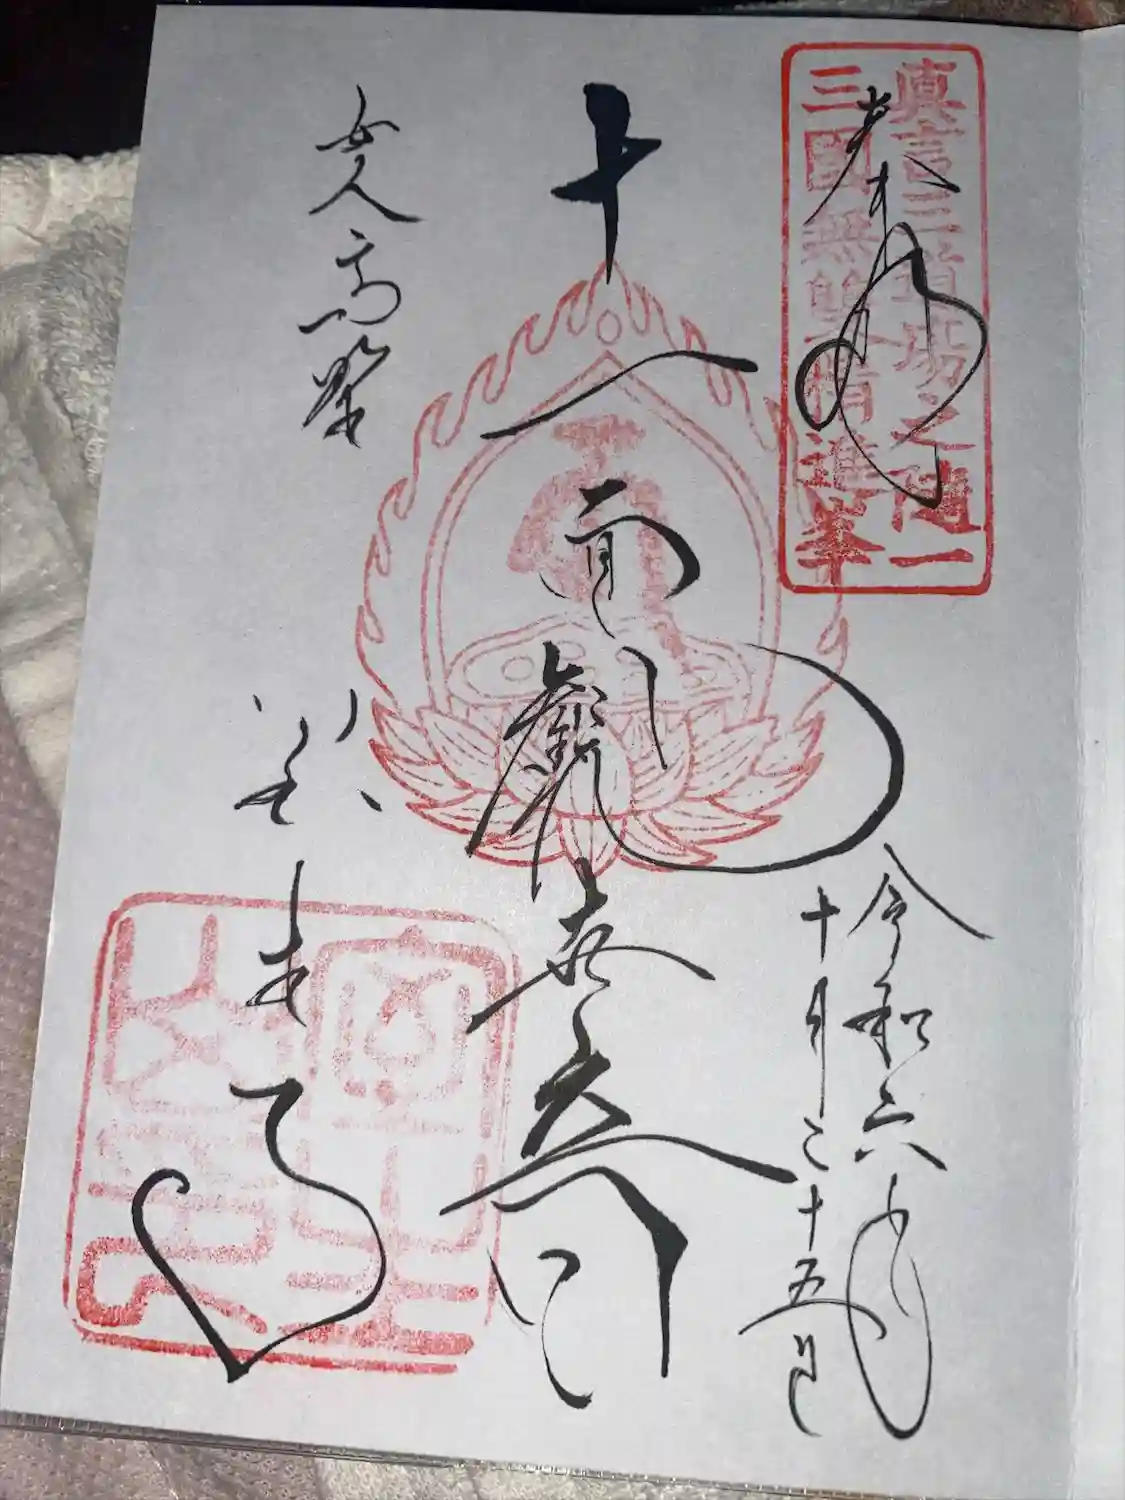 真言三道場之随一
三國無雙精進峯
奉拝
令和六年
十月二十五日
十一面觀
女人高野
室生寺